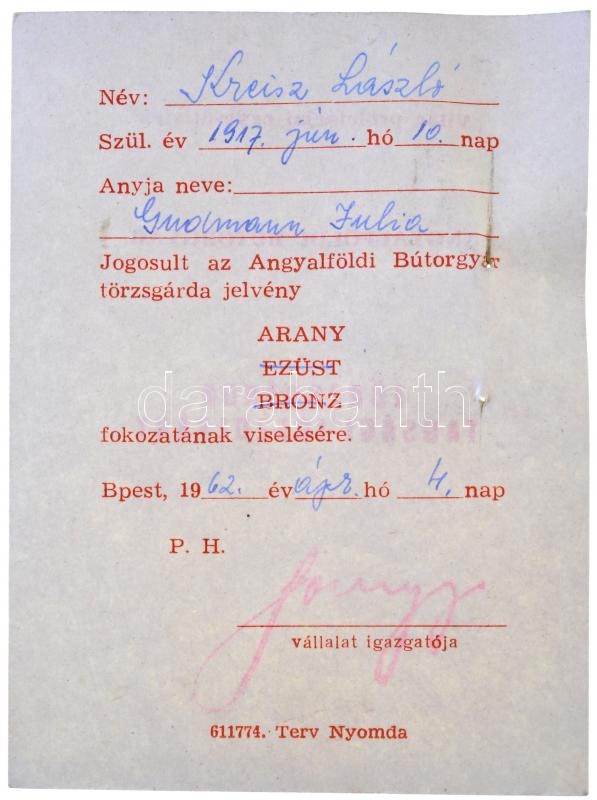 Név: Kreisz László
Szül. év 1917. jún. hó 10. nap
Anyja neve:
Gudmann Julia
Jogosult az Angyalföldi Bútorgyár
törzsgárda jelvény
ARANY
EZÜST
BRONZ
darabanth
fokozatának viselésére.
Bpest, 1962. év ápr. hó 4. nap
P. H.
vállalat igazgatója
611774. Terv Nyomda